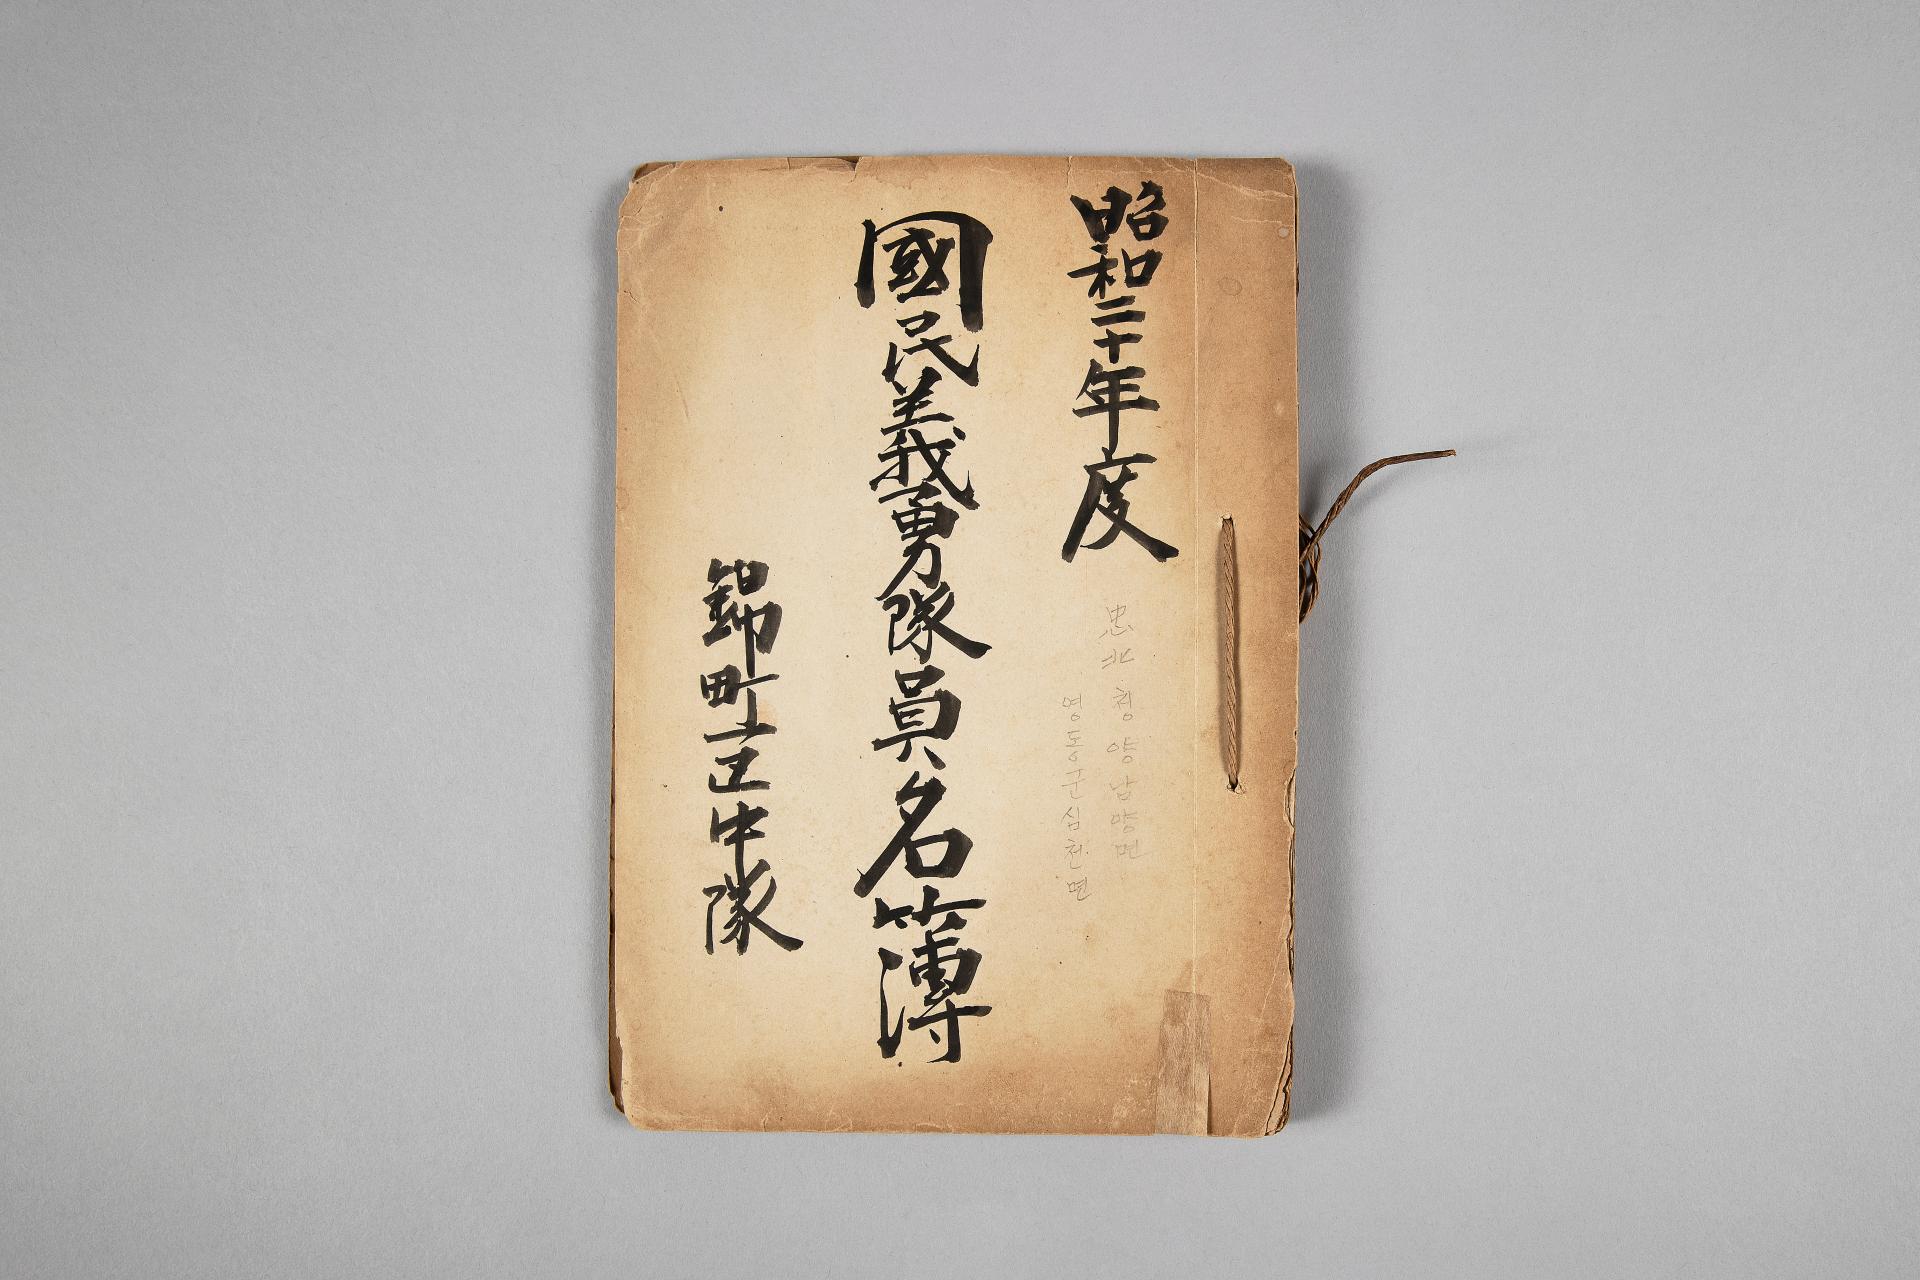 昭和二十年度
忠北 청양남양면
영동군심천면
國民義勇隊員名簿
錦町一区中隊